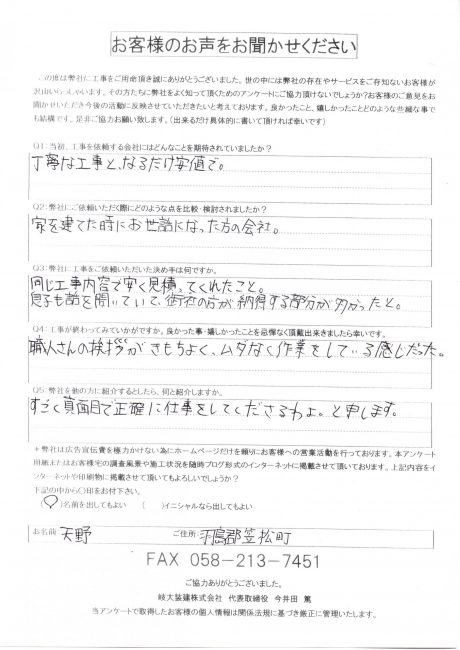 お客様のお声をお聞かせください
この度は弊社に工事をご用命頂き誠にありがとうございました。世の中には弊社の存在やサービスをご存知ないお客様が
沢山いらっしゃいます。その方たちに弊社をよく知って頂くためのアンケートにご協力頂けないでしょうか?お客様のご意見をお
聞かせいただき今後の活動に反映させていただきたいと考えております。良かったこと、嬉しかったことどのような些細な事で
も結構です、是非ご協力お願い致します。(出来るだけ具体的に書いて頂ければ幸いです)
Q1:当初、工事を依頼する会社にはどんなことを期待されていましたか?
丁寧な工事と、なるだけ安値で。
Q2:弊社にご依頼いただく際にどのような点を比較・検討されましたか?
家を建てた時にお世話になった方の会社。
Q3:弊社に工事をご依頼いただいた決め手は何ですか。
同じ工事内容で安く見積ってくれたこと。
息子も話を聞いていて、御社の方が納得する部分が多かったと。
Q4:工事が終わってみていかがですか。良かった事・嬉しかったことを忌憚なく頂戴出来きましたら幸いです。
職人さんの挨拶がきもちよく、ムダなく作業をしている感じだった。
Q5:弊社を他の方に紹介するとしたら、何と紹介しますか。
すごく真面目で正確に仕事をしてくださるわよ。と申します。
+弊社は広告宣伝費を極力かけない為にホームページだけを頼りにお客様への営業活動を行っております。本アンケート
用紙またはお客様宅の調査風景や施工状況を随時ブログ形式のインターネットに掲載させて頂いております。上記内容をイ
ンターネットや印刷物に掲載させて頂いてもよろしいでしょうか?
下記の中から〇印をお付下さい。
(〇)名前を出してもよい ( )イニシャルなら出してもよい
お名前 天野 ご住所: 羽島郡笠松町
FAX 058-213-7451
ご協力ありがとうございました。
岐大装建株式会社 代表取締役 今井田 篤
当アンケートで取得したお客様の個人情報は関係法規に基づき厳正に管理いたします。